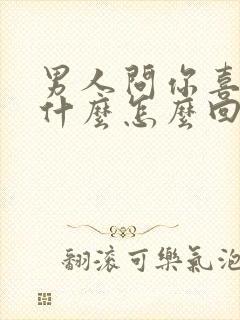 男人問你喜
什麼怎麼回
翻滾可樂氣泡